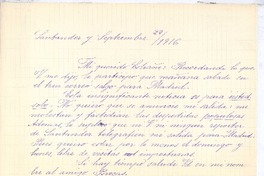 Santander y Septiembre 24/1916
Mi querido : Recordando lo que
V. me dijo, le participo que mañana salgo en
el tren correo para Madrid.
Esta insignificante noticia es para usted
solo. No quiero que se anuncie mi salida: me
molestan y fastidian las despedidas
Además, le ruego que no
de Santander telegrafíen mi salida para Madrid.
Pues quiero estar por lo menos el domingo y
lunes, libre de visitas
Si hay tiempo salude V. en mi nom-
bre al amigo